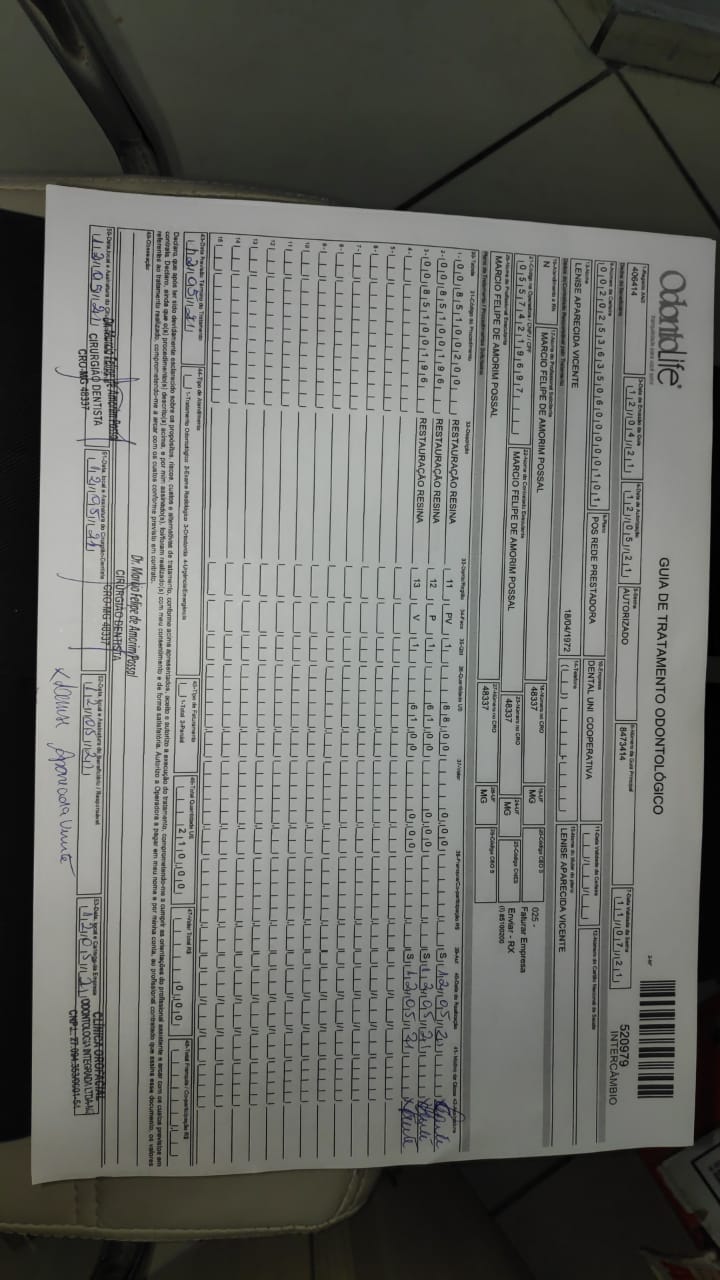 OdontoLife®
tranquilidade para você sorrir
GUIA DE TRATAMENTO ODONTOLÓGICO
2-Nº
520979
INTERCÂMBIO
1-Registro ANS
406414
3-Data de Emissão da Guia
12/04/21
4-Data de Autorização
12/05/21
5-Senha
AUTORIZADO
6-Número da Guia Principal
8473414
7-Data Validade da Senha
11/07/21
Dados do Beneficiário
8-Número da Carteira
9-Plano
POS REDE PRESTADORA
10-Empresa
DENTAL UNI COOPERATIVA
11-Data Validade da Carteira
12-Número do Cartão Nacional de Saúde
13-Nome
LENISE APARECIDA VICENTE
18/04/1972
14-Telefone
15-Nome do titular do plano
LENISE APARECIDA VICENTE
16-Atendimento a RN
N
17-Nome do Profissional Solicitante
MARCIO FELIPE DE AMORIM POSSAL
18-Número no CRO
48337
19-UF
MG
20-Código CBO S
025 -
Faturar Empresa
Enviar - RX
(I) 85100200
21-Código na Operadora / CNPJ / CPF
05574219697
22-Nome do Contratado Executante
MARCIO FELIPE DE AMORIM POSSAL
23-Número no CRO
48337
24-UF
MG
25-Código CNES
26-Nome do Profissional Executante
MARCIO FELIPE DE AMORIM POSSAL
27-Número no CRO
48337
28-UF
MG
29-Código CBO S
Plano de Tratamento / Procedimentos Solicitados
30-Tabela 31-Código do Procedimento 32-Descrição 33-Dente/Região 34-Face 35-Qtd 36-Quantidade US 37-Valor 38-Franquia/Co-participação R$ 39-Aut 40-Data de Realização 41-Motivo de Glosa
1- 00 85100200 RESTAURAÇÃO RESINA 11 PV 1 88,00 0,00 S 12/05/21
2- 00 85100196 RESTAURAÇÃO RESINA 12 P 1 61,00 0,00 S 12/05/21
3- 00 85100196 RESTAURAÇÃO RESINA 13 V 1 61,00 0,00 S 12/05/21
4-
5-
6-
7-
8-
9-
10
11
12
13
14
15
43-Data Prevista Término do Tratamento
12/05/21
44-Tipo de Atendimento
1-Tratamento Odontológico 2-Exame Radiológico 3-Ortodontia 4-Urgência/Emergência
45-Tipo de Faturamento
1-Total 2-Parcial
46-Total Quantidade US
210,00
47-Valor Total R$
0,00
48-Total Franquia / Co-participação R$
Declaro, que após ter sido devidamente esclarecido sobre os propósitos, riscos, custos e alternativas de tratamento, conforme acima apresentados, aceito e autorizo a execução do tratamento, comprometendo-me a cumprir as orientações do profissional assistente e arcar com os custos previstos em
contrato. Declaro, ainda que o(s) procedimento(s) descrito(s) acima, e por mim assinado(s), foi/foram realizado(s) com meu consentimento e de forma satisfatória. Autorizo a Operadora a pagar em meu nome e por minha conta, ao profissional contratado que assina esse documento, os valores
referentes ao tratamento realizado, comprometendo-me a arcar com os custos conforme previsto em contrato.
49-Observação
Dr. Marcio Felipe de Amorim Possal
CIRURGIÃO DENTISTA
CRO-MG 48337
12/05/21
Dr. Marcio Felipe de Amorim Possal
CIRURGIÃO DENTISTA
CRO-MG 48337
51-Data, local e Assinatura do Cirurgião-Dentista
12/05/21
52-Data, local e Assinatura do Beneficiário / Responsável
12/05/21
x Lenise Aparecida Vicente
53-Data, local e Carimbo da Empresa
12/05/21
CLÍNICA OROFACIAL
ODONTOLOGIA INTEGRADA LTDA-ME